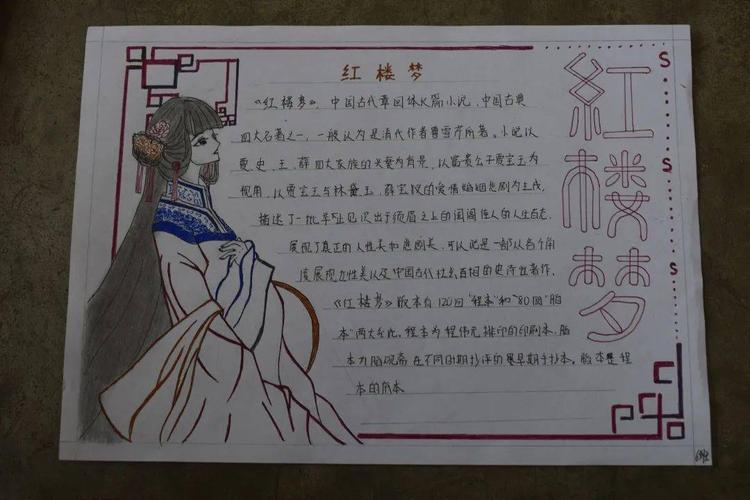 红楼梦
《红楼梦》,中国古代章回体长篇小说,中国古典
四大名著之一,一般认为是清代作者曹雪芹所著。小说以
贾、史、王、薛四大家族的兴衰为背景,以富贵公子贾宝玉为
视角,以贾宝玉与林黛玉、薛宝钗的爱情婚姻悲剧为主线,
描述了一批举止见识出于须眉之上的闺阁佳人的人生百态,
展现了真正的人性美和悲剧美,可以说是一部从各个角
度展现女性美以及中国古代社会百相的史诗性著作。
《红楼梦》版本有120回"程本"和"80回"脂
本"两大系统。程本为程伟元排印的印刷本,脂
本为脂砚斋在不同时期抄评的早期手抄本。脂本是程
本的底本
紅楼梦
S
S
S